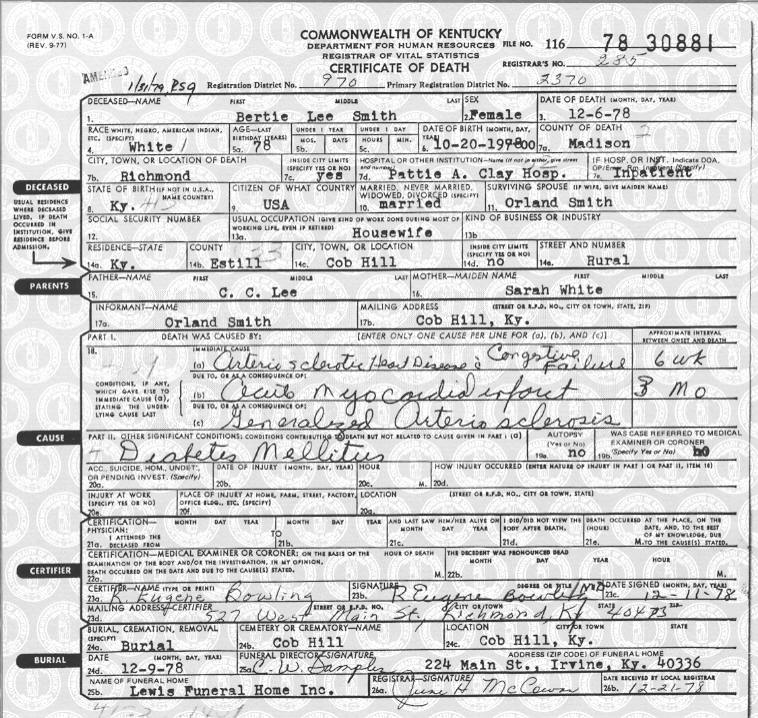 FORM V.S. NO. 1-A
(REV. 9-77)
COMMONWEALTH OF KENTUCKY
DEPARTMENT FOR HUMAN RESOURCES
REGISTRAR OF VITAL STATISTICS
CERTIFICATE OF DEATH
FILE NO. 116 78 30881
REGISTRAR'S NO. 285
AMENDED
1/31/79, RSG
Registration District No. 970 Primary Registration District No. 2370
DECEASED—NAME FIRST MIDDLE LAST SEX DATE OF DEATH (MONTH, DAY, YEAR)
1. Bertie Lee Smith 2. Female 3. 12-6-78
RACE WHITE, NEGRO, AMERICAN INDIAN, ETC. (SPECIFY) AGE—LAST BIRTHDAY (YEARS) UNDER 1 YEAR UNDER 1 DAY DATE OF BIRTH (MONTH, DAY, YEAR) COUNTY OF DEATH
4. White 5a. 78 5b. MOS. DAYS 5c. HOURS MIN. 6. 10-20- 7a. Madison
CITY, TOWN, OR LOCATION OF DEATH INSIDE CITY LIMITS (SPECIFY YES OR NO) HOSPITAL OR OTHER INSTITUTION—Name (If not in either, give street and number) IF HOSP. OR INST. Indicate DOA, OP/Emer. Rm., Inpatient (Specify)
7b. Richmond 7c. yes 7d. Pattie A. Clay Hosp. 7e. Inpatient
DECEASED
USUAL RESIDENCE WHERE DECEASED LIVED. IF DEATH OCCURRED IN INSTITUTION, GIVE RESIDENCE BEFORE ADMISSION.
STATE OF BIRTH (IF NOT IN U.S.A., NAME COUNTRY) CITIZEN OF WHAT COUNTRY MARRIED, NEVER MARRIED, WIDOWED, DIVORCED (SPECIFY) SURVIVING SPOUSE (IF WIFE, GIVE MAIDEN NAME)
8. Ky. 9. USA 10. married 11. Orland Smith
SOCIAL SECURITY NUMBER USUAL OCCUPATION (GIVE KIND OF WORK DONE DURING MOST OF WORKING LIFE, EVEN IF RETIRED) KIND OF BUSINESS OR INDUSTRY
12. 13a. Housewife 13b
RESIDENCE—STATE COUNTY CITY, TOWN, OR LOCATION INSIDE CITY LIMITS (SPECIFY YES OR NO) STREET AND NUMBER
14a. Ky. 14b. Estill 33 14c. Cob Hill 14d. no 14e. Rural
PARENTS
FATHER—NAME FIRST MIDDLE LAST MOTHER—MAIDEN NAME FIRST MIDDLE LAST
15. C. C. Lee 16. Sarah White
INFORMANT—NAME MAILING ADDRESS (STREET OR R.F.D. NO., CITY OR TOWN, STATE, ZIP)
17a. Orland Smith 17b. Cob Hill, Ky.
PART I. DEATH WAS CAUSED BY: [ENTER ONLY ONE CAUSE PER LINE FOR (a), (b), AND (c)] APPROXIMATE INTERVAL BETWEEN ONSET AND DEATH
18. IMMEDIATE CAUSE
(a) Arteriosclerotic Heart Disease c Congestive Failure 6 wk
CONDITIONS, IF ANY, WHICH GAVE RISE TO IMMEDIATE CAUSE (a), STATING THE UNDERLYING CAUSE LAST
DUE TO, OR AS A CONSEQUENCE OF:
(b) Acute myocardial infarct 3 Mo
DUE TO, OR AS A CONSEQUENCE OF:
(c) Generalized Arteriosclerosis
CAUSE
PART II. OTHER SIGNIFICANT CONDITIONS: CONDITIONS CONTRIBUTING TO DEATH BUT NOT RELATED TO CAUSE GIVEN IN PART I (a) AUTOPSY (Yes or No) WAS CASE REFERRED TO MEDICAL EXAMINER OR CORONER (Specify Yes or No)
Diabetes Mellitus 19a. no 19b. no
ACC., SUICIDE, HOM., UNDET., OR PENDING INVEST. (Specify) DATE OF INJURY (MONTH, DAY, YEAR) HOUR HOW INJURY OCCURRED (ENTER NATURE OF INJURY IN PART I OR PART II, ITEM 18)
20a. 20b. 20c. M. 20d.
INJURY AT WORK (SPECIFY YES OR NO) PLACE OF INJURY AT HOME, FARM, STREET, FACTORY, OFFICE BLDG., ETC. (SPECIFY) LOCATION (STREET OR R.F.D. NO., CITY OR TOWN, STATE)
20e. 20f. 20g.
CERTIFICATION—PHYSICIAN: MONTH DAY YEAR MONTH DAY YEAR AND LAST SAW HIM/HER ALIVE ON MONTH DAY YEAR I DID/DID NOT VIEW THE BODY AFTER DEATH. DEATH OCCURRED AT THE PLACE, ON THE DATE, AND, TO THE BEST OF MY KNOWLEDGE, DUE TO THE CAUSE(S) STATED.
21a. I ATTENDED THE DECEASED FROM TO 21b. 21c. 21d. 21e. (HOUR) M.
CERTIFIER
CERTIFICATION—MEDICAL EXAMINER OR CORONER: ON THE BASIS OF THE EXAMINATION OF THE BODY AND/OR THE INVESTIGATION, IN MY OPINION, DEATH OCCURRED ON THE DATE AND DUE TO THE CAUSE(S) STATED. HOUR OF DEATH THE DECEDENT WAS PRONOUNCED DEAD MONTH DAY YEAR HOUR
22a. M. 22b. M.
CERTIFIER—NAME (TYPE OR PRINT) SIGNATURE DEGREE OR TITLE DATE SIGNED (MONTH, DAY, YEAR)
23a. R. Eugene Bowling 23b. R Eugene Bowling MD 23c. 12-11-78
MAILING ADDRESS/CERTIFIER STREET OR R.F.D. NO. CITY OR TOWN STATE ZIP
23d. 527 West Main St. Richmond, Ky 40475
BURIAL
BURIAL, CREMATION, REMOVAL (SPECIFY) CEMETERY OR CREMATORY—NAME LOCATION CITY OR TOWN STATE
24a. Burial 24b. Cob Hill 24c. Cob Hill, Ky.
DATE (MONTH, DAY, YEAR) FUNERAL DIRECTOR—SIGNATURE ADDRESS (ZIP CODE) OF FUNERAL HOME
24d. 12-9-78 25a. C. W. Sample 224 Main St., Irvine, Ky. 40336
NAME OF FUNERAL HOME REGISTRAR—SIGNATURE DATE RECEIVED BY LOCAL REGISTRAR
25b. Lewis Funeral Home Inc. 26a. June H McCowan 26b. 12-21-78